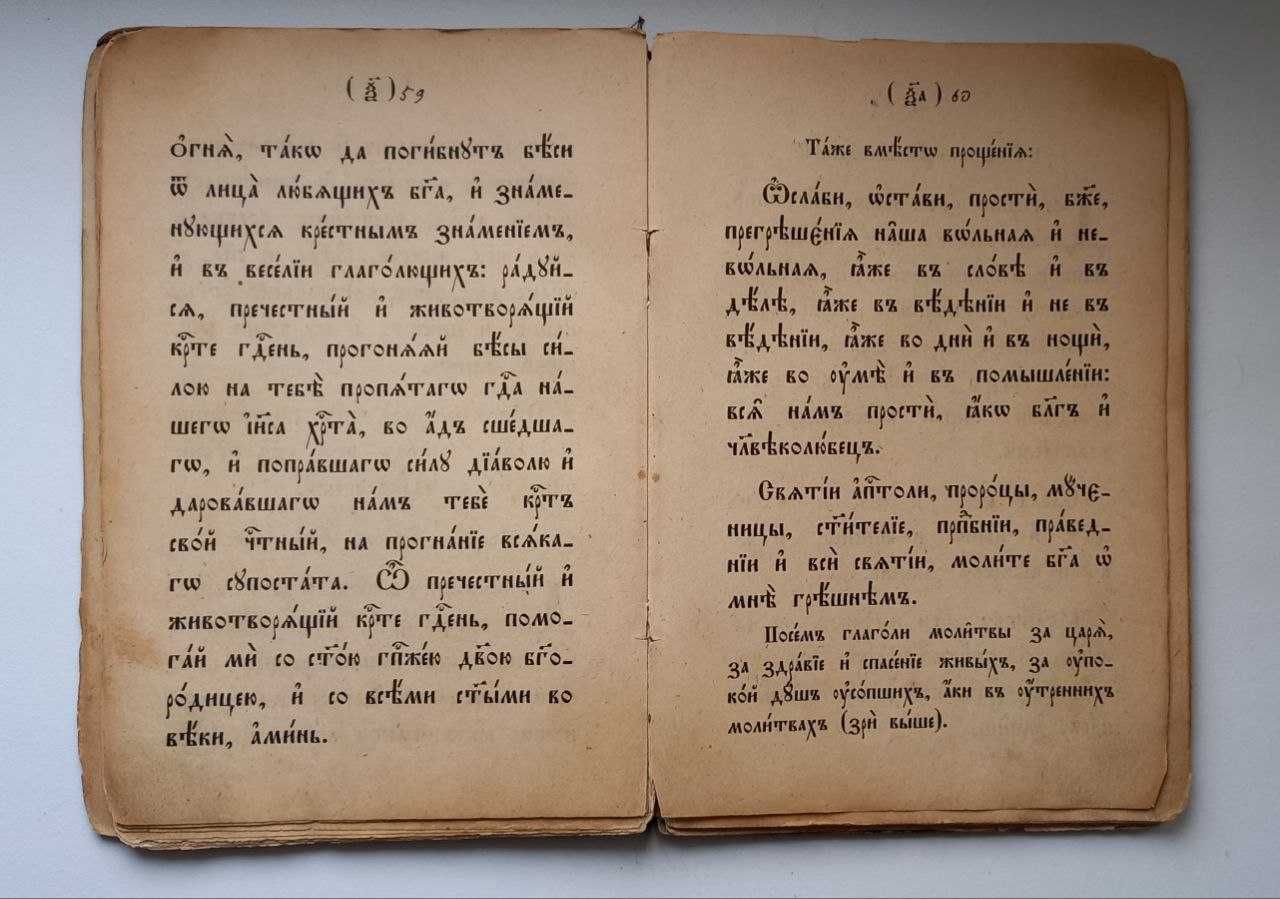 ( ѯ҃ ) 59
ѻ҆гнѧ̀, та́кѡ да поги́бнꙋтъ бѣ́си
ѿ лица̀ лю́бѧщихъ бг҃а, и҆ зна́ме-
нꙋющихсѧ кре́стнымъ зна́менїемъ,
и҆ въ весе́лїи глаго́лющихъ: ра́дꙋй-
сѧ, пречестны́й и҆ животворѧ́щїй
крⷭ҇те гдⷭ҇ень, прогонѧ́ѧй бѣ́сы си́-
лою на тебѣ̀ пропѧ́тагѡ гдⷭ҇а на́-
шегѡ і҆и҃са хрⷭ҇та̀, во а҆́дъ сше́дша-
гѡ, и҆ попра́вшагѡ си́лꙋ дїа́волю и҆
дарова́вшагѡ на́мъ тебѐ крⷭ҇тъ
сво́й чⷭ҇тны́й, на прогна́нїе всѧ́ка-
гѡ сꙋпоста́та. Ѽ пречестны́й и҆
животворѧ́щїй крⷭ҇те гдⷭ҇ень, помо-
га́й мѝ со ст҃о́ю гпⷭ҇же́ю дв҃ою бг҃о-
ро́дицею, и҆ со всѣ́ми ст҃ы́ми во
вѣ́ки, а҆ми́нь.
( ѯ҃а ) 60
Та́же вмѣ́стѡ проще́нїѧ:
Ѡ҆сла́би, ѡ҆ста́ви, простѝ, бж҃е,
прегрѣшє́нїѧ на̑ша вѡ́льнаѧ и҆ не-
вѡ́льнаѧ, ꙗ҆̀же въ сло́вѣ и҆ въ
дѣ́лѣ, ꙗ҆̀же въ вѣ́дѣнїи и҆ не въ
вѣ́дѣнїи, ꙗ҆̀же во днѝ и҆ въ нощѝ,
ꙗ҆̀же во ᲂу҆мѣ̀ и҆ въ помышле́нїи:
всѧ̑ на́мъ простѝ, ꙗ҆́кѡ бл҃гъ и҆
чл҃вѣколю́бецъ.
Свѧті́и а҆пⷭ҇толи, проро́цы, мꙋ́че-
ницы, ст҃и́телїе, прпⷣбнїи, пра́вед-
нїи и҆ всѝ свѧті́и, моли́те бг҃а ѡ҆
мнѣ̀ грѣ́шнѣмъ.
Посе́мъ глаго́ли моли̑твы за царѧ̀,
за здра́вїе и҆ спасе́нїе живы́хъ, за ᲂу҆по-
ко́й дꙋ́шъ ᲂу҆со́пшихъ, а҆́ки въ ᲂу҆́треннихъ
моли́твахъ (зрѝ вы́ше).